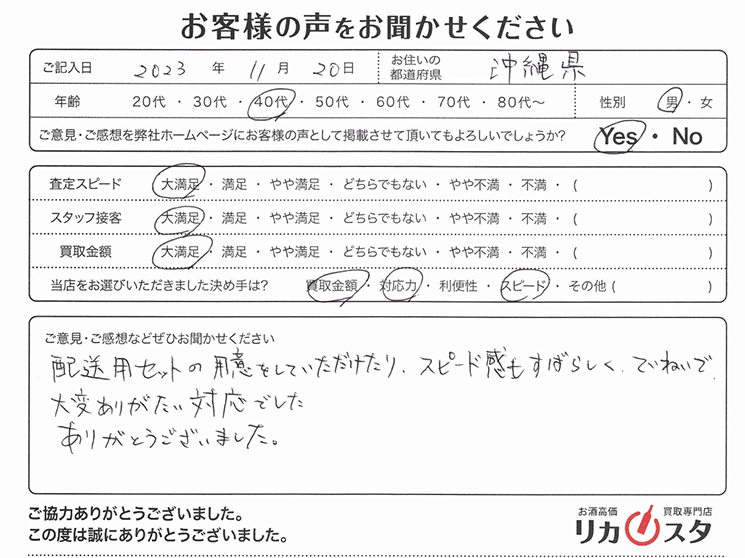 お客様の声をお聞かせください
ご記入日 2023 年 11 月 20 日 お住いの都道府県 沖縄県
年齢 20代 ・ 30代 ・ 40代 ・ 50代 ・ 60代 ・ 70代 ・ 80代〜 性別 男 ・ 女
ご意見・ご感想を弊社ホームページにお客様の声として掲載させて頂いてもよろしいでしょうか? Yes ・ No
査定スピード 大満足 ・ 満足 ・ やや満足 ・ どちらでもない ・ やや不満 ・ 不満 ・ ( )
スタッフ接客 大満足 ・ 満足 ・ やや満足 ・ どちらでもない ・ やや不満 ・ 不満 ・ ( )
買取金額 大満足 ・ 満足 ・ やや満足 ・ どちらでもない ・ やや不満 ・ 不満 ・ ( )
当店をお選びいただきました決め手は? 買取金額 ・ 対応力 ・ 利便性 ・ スピード ・ その他 ( )
ご意見・ご感想などぜひお聞かせください
配送用セットの用意をしていただけたり、スピード感もすばらしく、ていねいで、
大変ありがたい対応でした
ありがとうございました。
ご協力ありがとうございました。
この度は誠にありがとうございました。
お酒高価 買取専門店
リカスタ